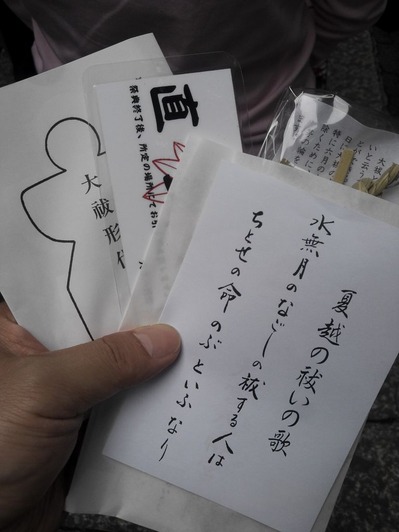 夏越の祓いの歌
水無月のなごしの祓する人は
ちとせの命のぶといふなり
大祓形代
直
祭典終了後、所定の場所